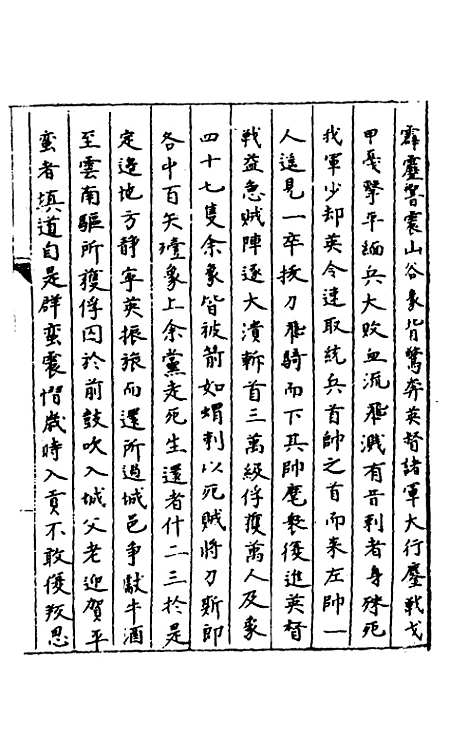 霹靂警震山谷象皆驚奔英督諸軍大行鏖戰戈
甲戞擊平緬兵大敗血流飛濺有昔剌者身殊死
我軍少却英令速取統兵首帥之首而來左帥一
人遠見一卒拔刀飛騎而下其帥麾衆復進英督
戰益急賊陣遂大潰斬首三萬級俘獲萬人及象
四十七隻余象皆被箭如蝟刺以死賊將刀斯郎
各中百矢殪象上余黨走死生還者什二三於是
定邊地方靜寧英振旅而還所過城邑爭獻牛酒
至雲南驅所獲俘囚於前鼓吹入城父老迎賀平
蛮者填道自是群蛮震慴歲時入貢不敢復叛思